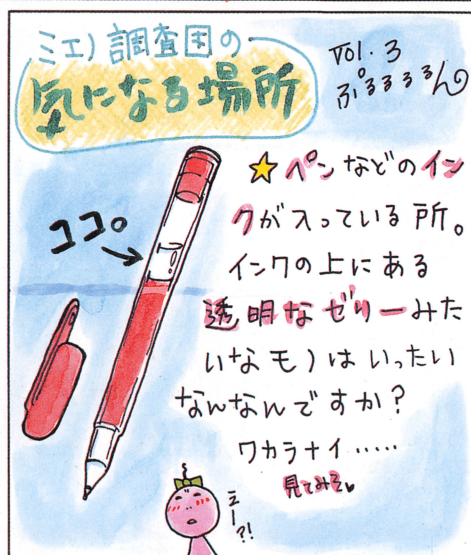 ミエ)調査団の
気になる場所
Vol.3
ぷるるるるん
ココ。
☆ペンなどのイン
クが入っている所。
インクの上にある
透明なゼリーみた
いなモノはいったい
なんなんですか?
ワカラナイ……
見てみそ♥
ミー?!